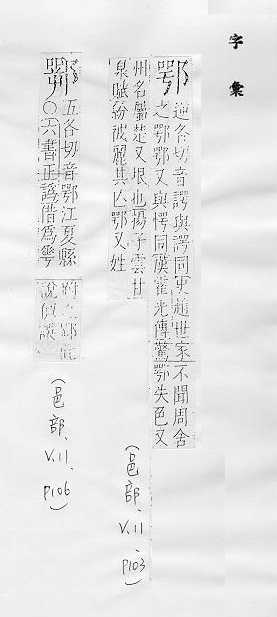 字彙
鄂 逆各切音諤與諤同史趙世家不聞周舍
之鄂鄂又與愕同漢霍光傳驚鄂失色又
州名屬楚又垠也揚子雲甘
泉賦紛被麗其亡鄂又姓
(邑部、V.11、P103)
五各切音鄂江夏縣
〇六書正譌借爲咢
說
(邑部、V.11、P106)